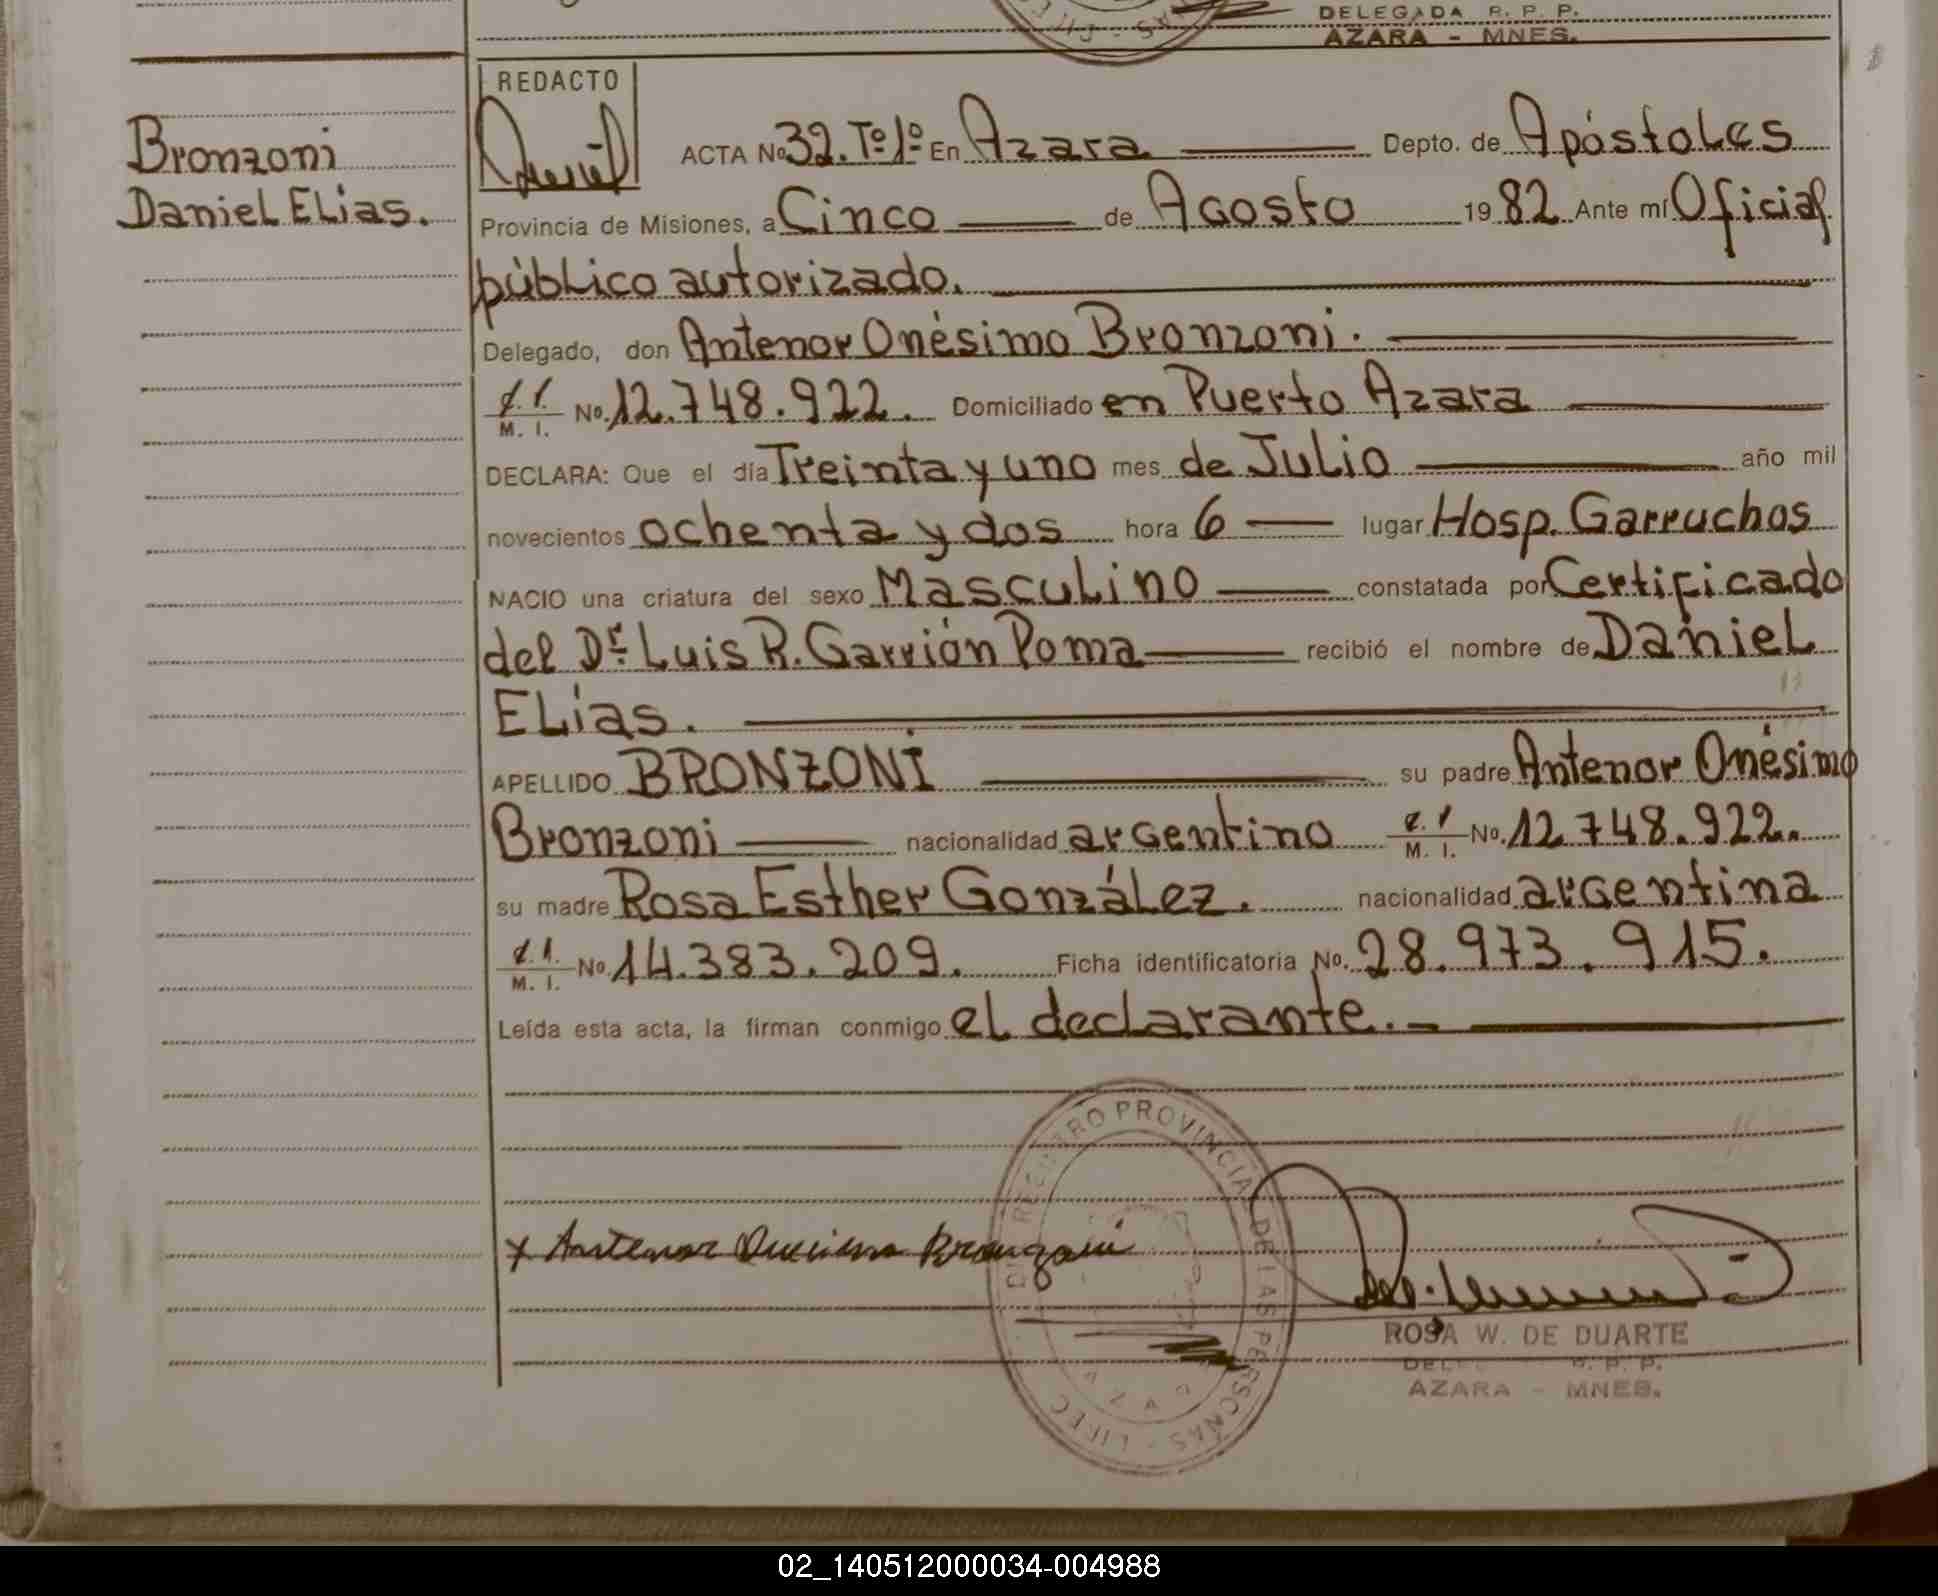 DELEGADA R. P. P.
AZARA - MNES.
REDACTO
Bronzoni
Daniel Elias.
ACTA No 32. Tº 1º En Azara Depto. de Apóstoles
Provincia de Misiones, a Cinco de Agosto 1982 Ante mí Oficial
público autorizado.
Delegado, don Antenor Onésimo Bronzoni.
M. I. No. 12.748.922. Domiciliado en Puerto Azara
DECLARA: Que el día Treinta y uno mes de Julio año mil
novecientos ochenta y dos hora 6 lugar Hosp. Garruchos
NACIO una criatura del sexo Masculino constatada por Certificado
del Dr. Luis R. Garrión Poma recibió el nombre de Daniel
Elías.
APELLIDO BRONZONI su padre Antenor Onésimo
Bronzoni nacionalidad argentino M. I. No. 12.748.922.
su madre Rosa Esther González. nacionalidad argentina
M. I. No. 14.383.209. Ficha identificatoria No. 28.973.915.
Leída esta acta, la firman conmigo el declarante.
x Antenor Onésimo Bronzoni
REGISTRO PROVINCIAL DE LAS PERSONAS
AZA
ROSA W. DE DUARTE
R. P. P.
AZARA - MNES.
02_140512000034-004988